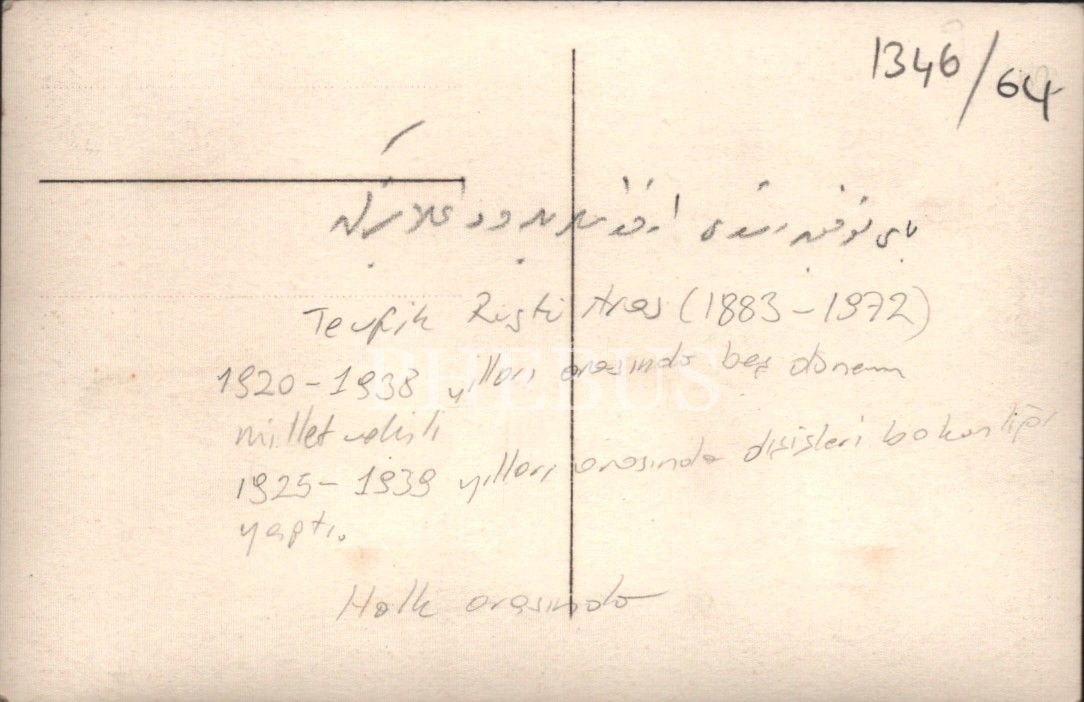 1346/64
بای توفیق رشدی
Tevfik Rüştü Aras (1883-1972)
1920-1938 yılları arasında beş dönem
milletvekili
1925-1939 yılları arasında dışişleri bakanlığı
yaptı.
Halk arasında
PHEBUS